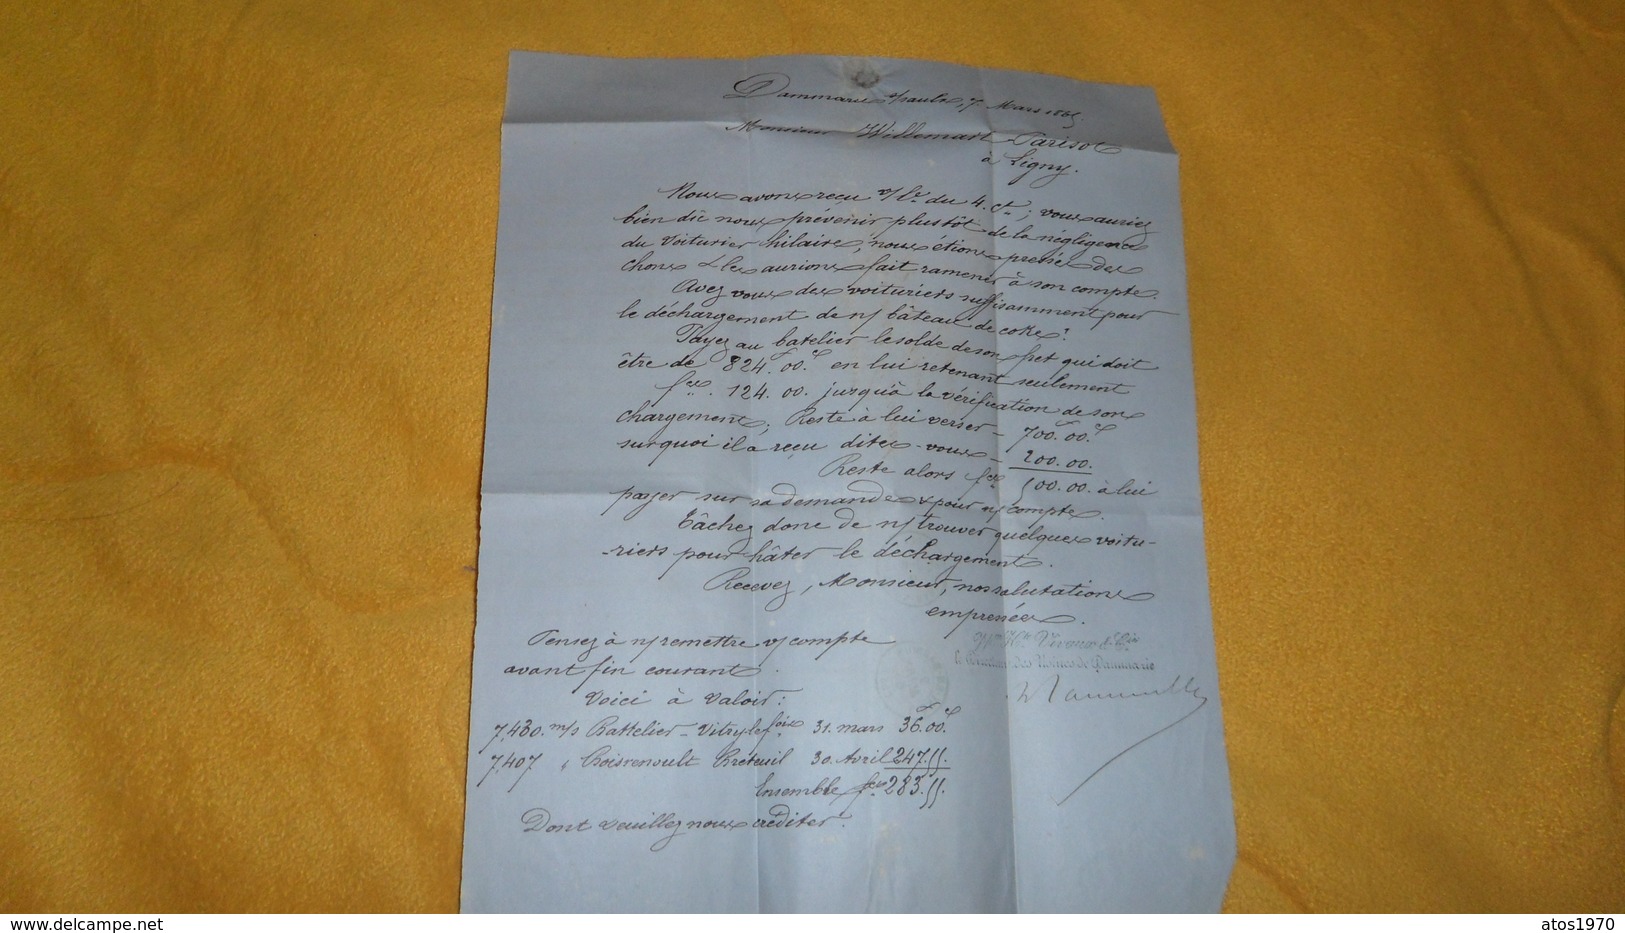 Dammarie s/saulx, 7 Mars 1865
Monsieur Willemart Parisot
à Ligny.
Nous avons reçu v/ lre du 4. ct; vous auriez
bien dû nous prévenir plustôt de la négligence
du Voiturier hilaire, nous étions pressé des
chons & les aurions fait ramener à son compte.
Avez vous des voituriers suffisamment pour
le déchargement de n/ bâteau de coke?
Payez au batelier le solde de son fret qui doit
être de 824.F00.C en lui retenant seulement
fcs. 124.00. jusqu'à la vérification de son
chargement; Reste à lui verser – 700.F00.C
surquoi il a reçu dites-vous – 200.00.
Reste alors fcs 500.00. à lui
payer sur sa demande & pour n/ compte.
Tâchez donc de n/ trouver quelques voitu-
-riers pour hâter le déchargement.
Recevez, Monsieur, nos salutations
empressées.
Pensez à n/ remettre v/ compte
avant fin courant.
Vve Hte Vivaux & Cie
des Usines de Dammarie
Voici à Valoir:
7,430. m/s Battelier – Vitry le fois 31. mars 36.F00.C
7,407 " Choisrenoult Creteuil 30. Avril 247.55.
Ensemble fcs 283.55.
Dont veuillez nous créditer.
atos1970